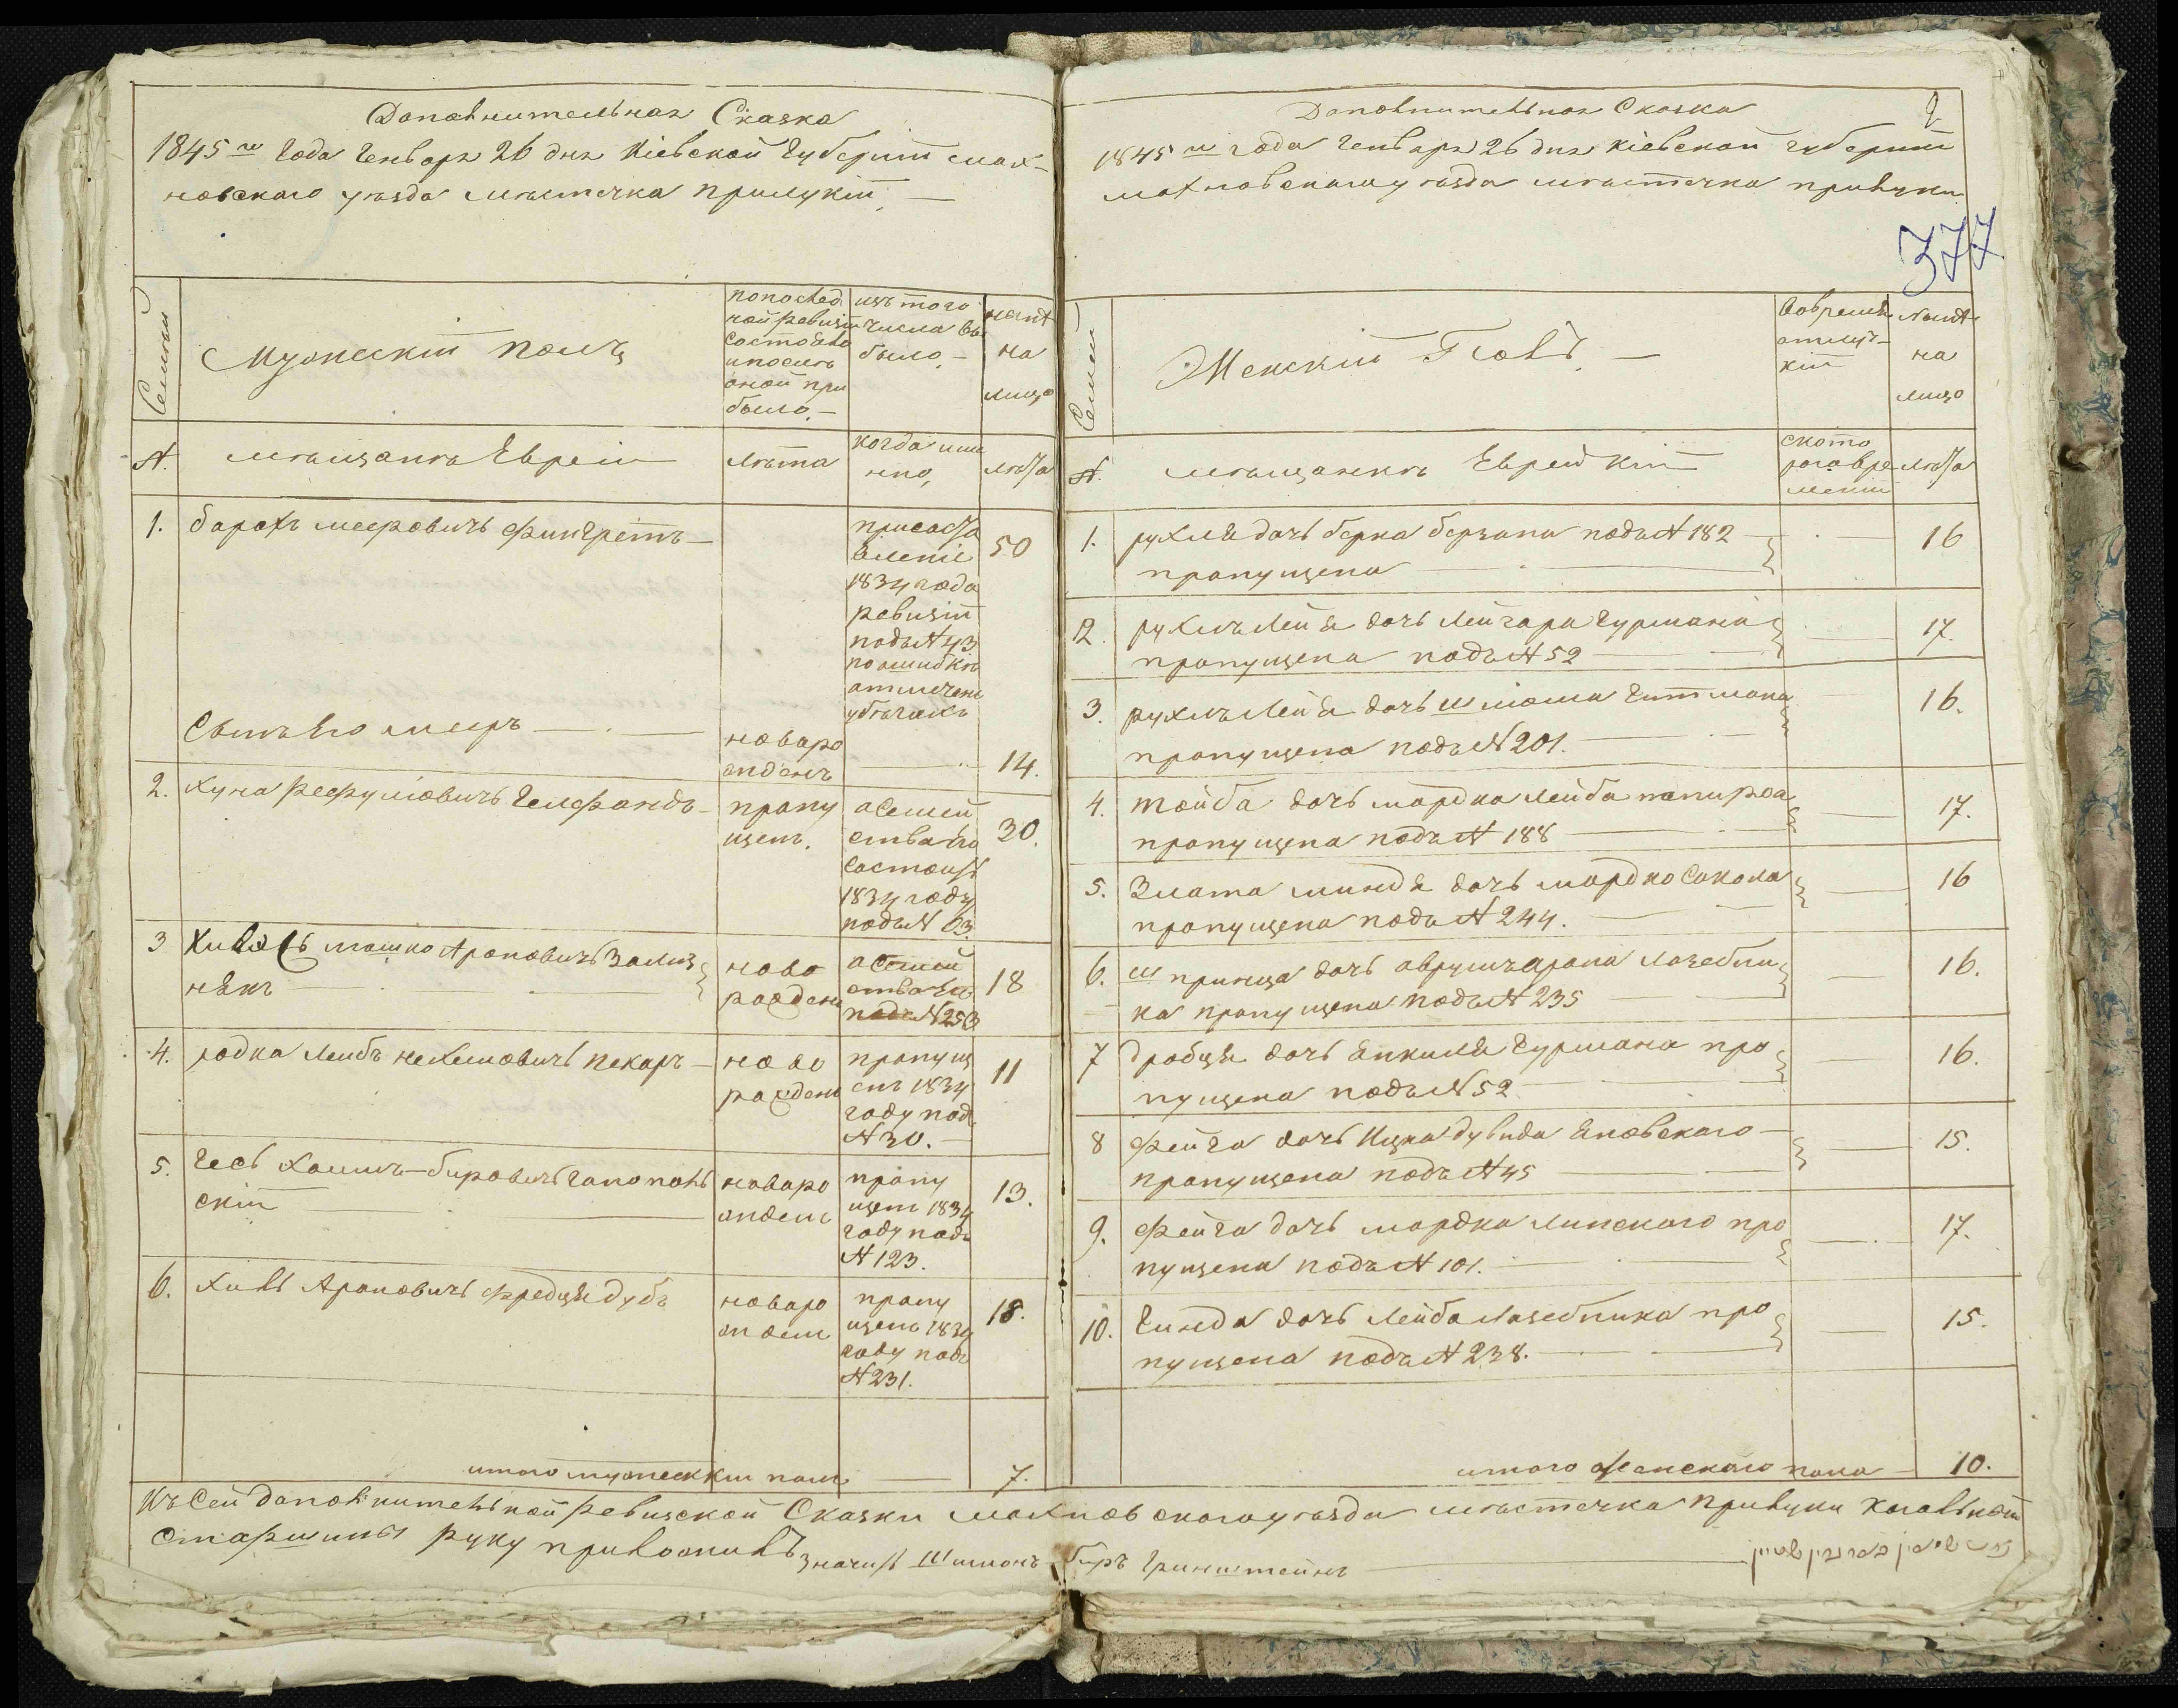 Дополнительная Сказка
1845 го Года Генваря 26 дня Кіевской Губерніи мах-
новского уезда местечка Прилукіи, —
Семьи
Мужескій полъ
попослед
ней ревизіи
состояло
и после
оной при
было. —
изъ того
числа вы
было, —
ныне
на
лицо
№.
мещанъ Евреи
лета
когда име
нно,
лета
1. барахъ меровичъ Фингретъ —
присоста
вленіе
1834 года
ревизіи
подъ № 43
по ошибки
отмеченъ
убегимъ
50
Сынъ Его меръ —
новоро
жденъ
14.
2. Хуна Рефуловичъ Гелфандъ —
пропу
щенъ.
о Семей
ства Его
Состоитъ
1834 году
подъ № 63.
30.
3 Хивель мошко Ароновичъ Зализ
някъ
ново
рожденъ
о Семей
ства Его
подъ № 253
18
4. родка Лейбъ Нехемовичъ Пекаръ —
ново
рожденъ
пропущ
енъ 1834
году подъ
№ 30. —
11
5. Гесь Хаимъ-бировичъ Гапополь
скій
новоро
жденъ
пропу
щенъ 1834
году подъ
№ 123.
13.
6. Хиль Ароновичъ Фредцядубъ
новоро
жденъ
пропу
щенъ 1834
году подъ
№ 231.
18.
итого мужескій полъ — 7.
Дополнительная Сказка
2
1845 го года Генваря 26 дня Кіевской губерніи
махновского уезда местечка прилуки
377
Семьи
Женскій Полъ, —
Вовремен
отлуч-
кіи
ныне
на
лицо
№.
мещанкъ Еврейкіи
ското
рого вре
мени
лета
1. рухля дочь берка берзана подъ № 182 —
пропущена
16
2. рухлъ Лея дочь Лейзара Гурмана
пропущена подъ № 52
17.
3. рухлъ Лея дочь шлюма Гитмана
пропущена подъ № 201.
16.
4. тойба дочь мордка Лейба папироа
пропущена подъ № 188
17.
5. Злата миндя дочь мордко Сокола
пропущена подъ № 244.
16
6. шпринца дочь аврумъ арона Лазебни
ка пропущена подъ № 235
16.
7 дробця дочь янкиля Гурмана про
пущена подъ № 52
16.
8 Фейга дочь Ицка дувида Яновского —
пропущена подъ № 45
15.
9. Фейга дочь мордка Липского про
пущена подъ № 101.
17.
10. Гинда дочь Лейба Лазебника про
пущена подъ № 238.
15.
итого женского пола — 10.
Къ Сей дополнительной ревизской Сказки махновского уезда местечка прилуки кагальной
Старшины руку приложилъ значитъ Шимонъ биръ Гринштейнъ